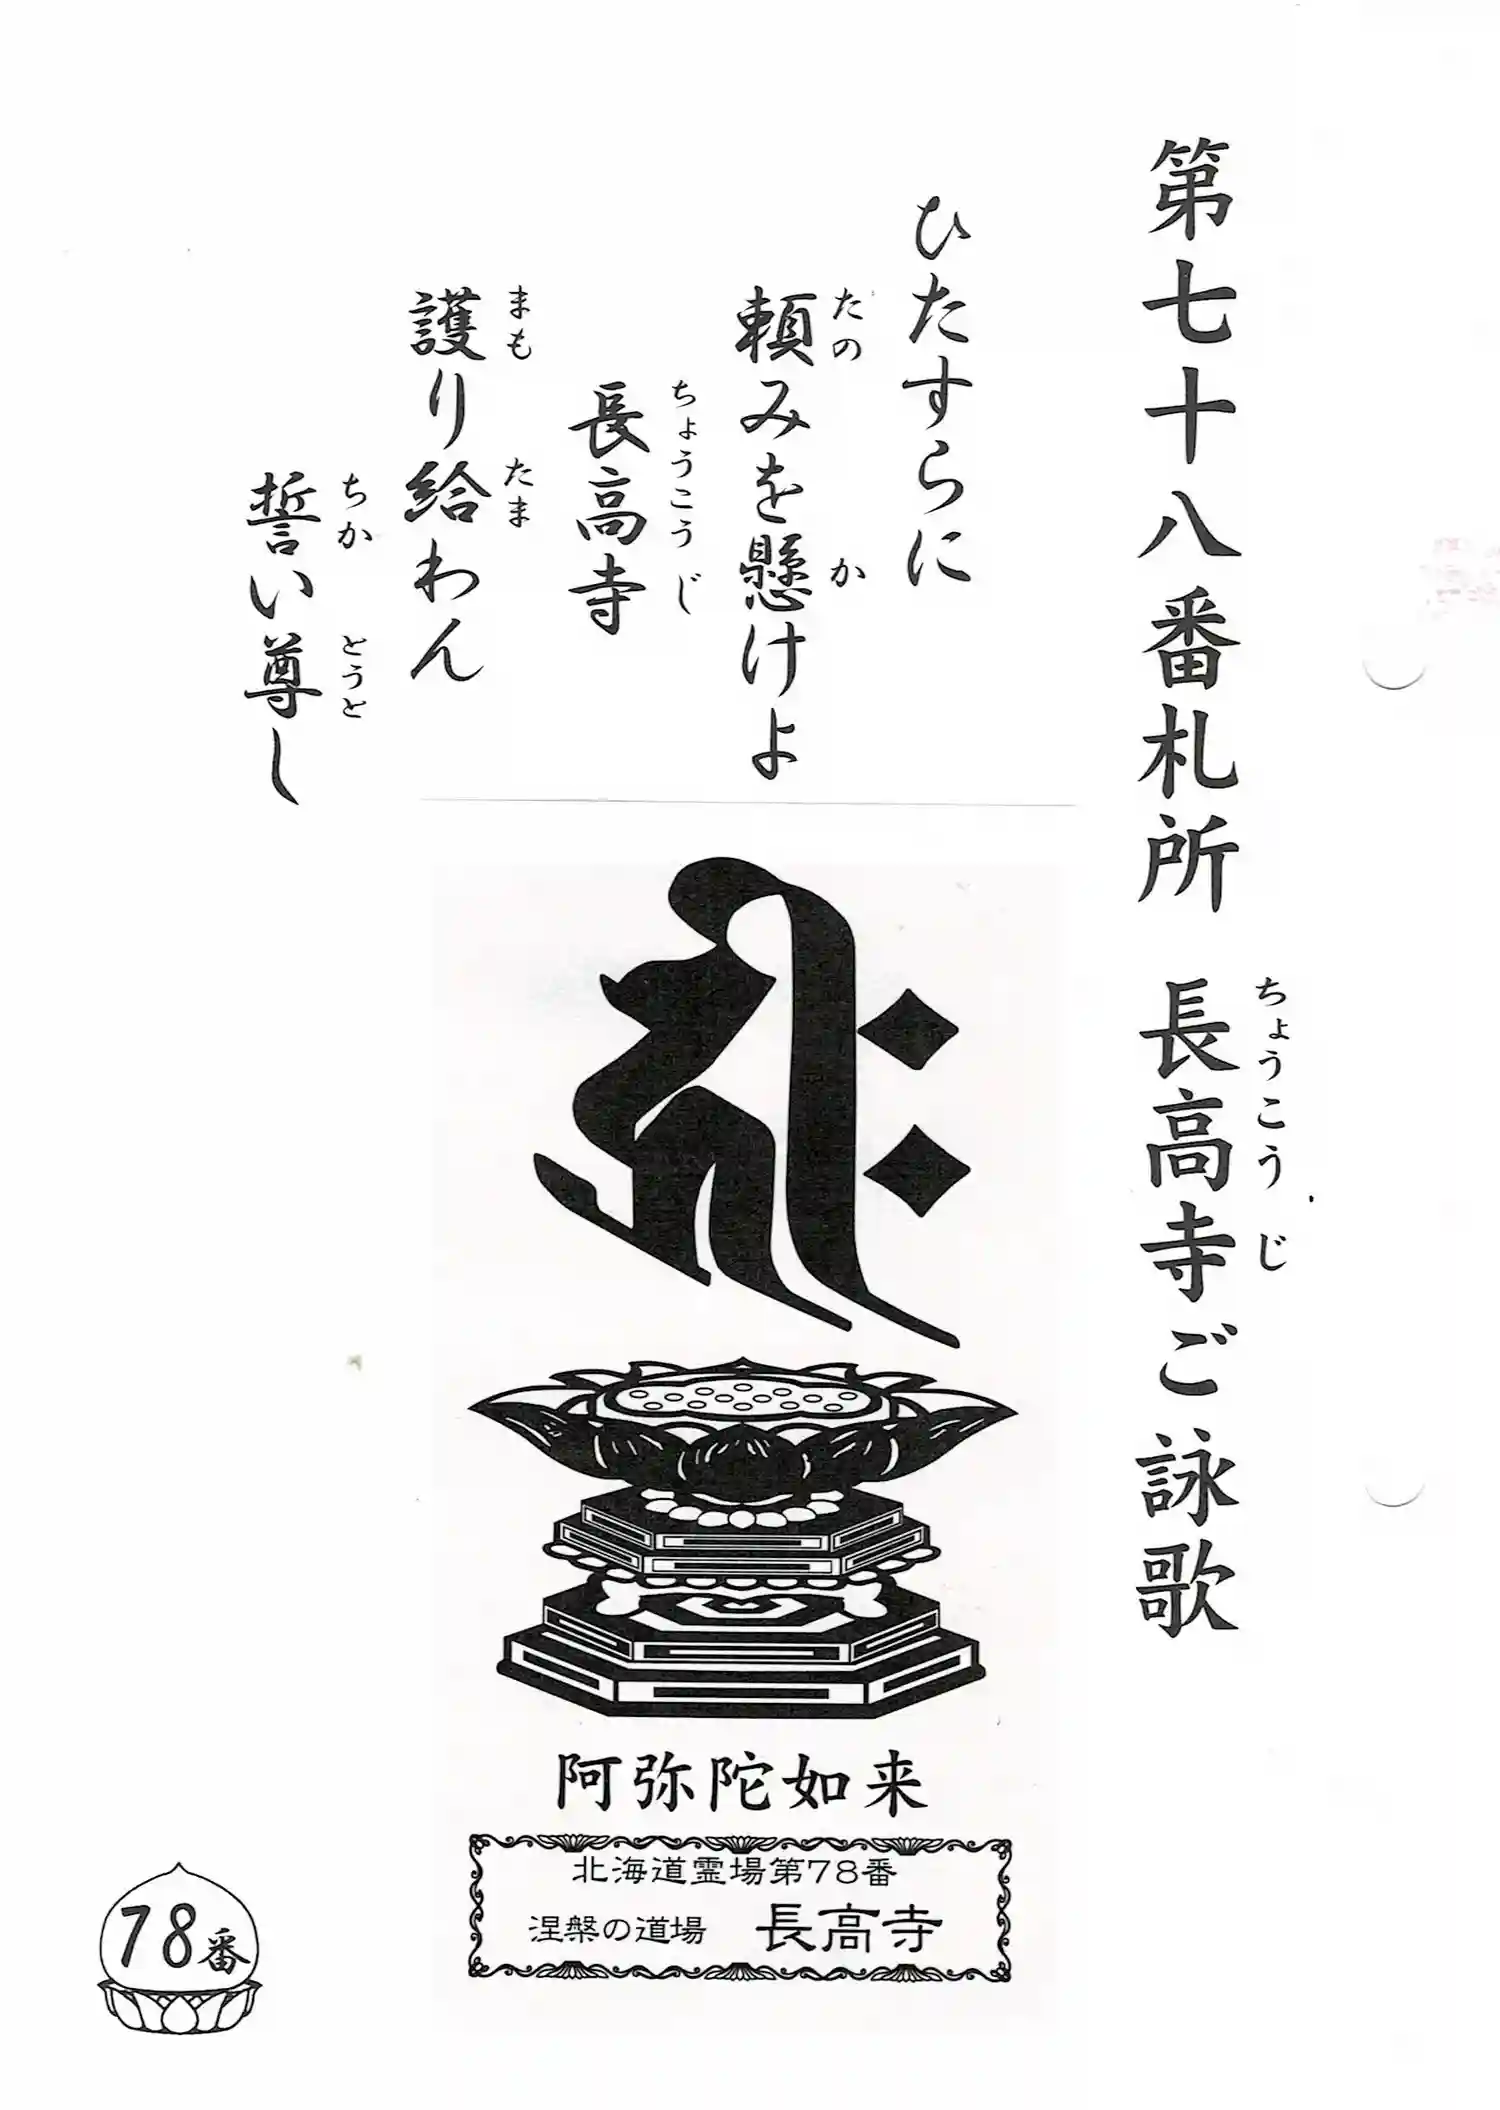 第七十八番札所 長高寺ご詠歌
ちょうこうじ
ひたすらに
頼みを懸けよ
たの か
長高寺
ちょうこうじ
護り給わん
まも たま
誓い尊し
ちか とうと
阿弥陀如来
北海道霊場第78番
涅槃の道場 長高寺
78番